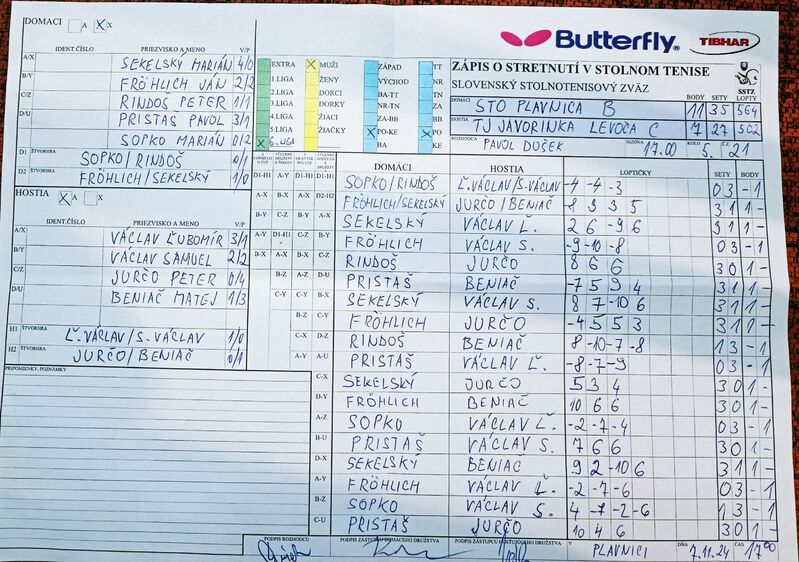 DOMACI A X X
IDENT.ČÍSLO PRIEZVISKO A MENO V/P
A/X SEKELSKÝ MARIÁN 4/0
B/Y FRÖHLICH JÁN 2/2
C/Z RINDOŠ PETER 1/1
D/U PRISTAŠ PAVOL 3/1
SOPKO MARIÁN 0/2
D1 ŠTVORHRA SOPKO/RINDOŠ 0/1
D2 ŠTVORHRA FRÖHLICH/SEKELSKÝ 1/0
HOSTIA X A X
IDENT.ČÍSLO PRIEZVISKO A MENO V/P
A/X VÁCLAV ĽUBOMÍR 3/1
B/Y VÁCLAV SAMUEL 2/2
C/Z JURČO PETER 0/4
D/U BENIAČ MATEJ 1/3
H1 ŠTVORHRA Ľ.VÁCLAV/S.VÁCLAV 1/0
H2 ŠTVORHRA JURČO/BENIAČ 0/1
PRIPOMIENKY, POZNÁMKY
EXTRA X MUŽI ZÁPAD TT
1.LIGA ŽENY VÝCHOD NR
2.LIGA DORCI BA-TT TN
3.LIGA DORKY NR-TN ZA
4.LIGA ŽIACI ZA-BB BB
5.LIGA ŽIAČKY X PO-KE X PO
X 6.LIGA BA KE
Butterfly TIBHAR
ZÁPIS O STRETNUTÍ V STOLNOM TENISE
SLOVENSKÝ STOLNOTENISOVÝ ZVÄZ SSTZ
BODY SETY LOPTY
DOMÁCI STO PLAVNICA B 11 35 564
HOSTIA TJ JAVORINKA LEVOČA C 7 27 502
ROZHODCA PAVOL DUŠEK SEZONA 17.00 KOLO 5. Č. 21
DOMÁCI HOSTIA LOPTIČKY SETY BODY
SOPKO/RINDOŠ Ľ.VÁCLAV/S.VÁCLAV -4 -4 -3 0 3 - 1
FRÖHLICH/SEKELSKÝ JURČO/BENIAČ -8 9 3 5 3 1 1 -
SEKELSKÝ VÁCLAV Ľ. 2 6 -9 6 3 1 1 -
FRÖHLICH VÁCLAV S. -9 -10 -8 0 3 - 1
RINDOŠ JURČO 8 6 6 3 0 1 -
PRISTAŠ BENIAČ -7 5 9 4 3 1 1 -
SEKELSKÝ VÁCLAV S. 8 7 -10 6 3 1 1 -
FRÖHLICH JURČO -4 5 5 3 3 1 1 -
RINDOŠ BENIAČ 8 -10 -7 -8 1 3 - 1
PRISTAŠ VÁCLAV Ľ. -8 -7 -9 0 3 - 1
SEKELSKÝ JURČO 5 3 4 3 0 1 -
FRÖHLICH BENIAČ 10 6 6 3 0 1 -
SOPKO VÁCLAV Ľ. -2 -7 -4 0 3 - 1
PRISTAŠ VÁCLAV S. 7 6 6 3 0 1 -
SEKELSKÝ BENIAČ 9 2 -10 6 3 1 1 -
FRÖHLICH VÁCLAV Ľ. -2 -7 -6 0 3 - 1
SOPKO VÁCLAV S. 4 -7 -2 -6 1 3 - 1
PRISTAŠ JURČO 10 4 6 3 0 1 -
PODPIS ROZHODCU PODPIS ZÁSTUPCU DOMÁCEHO DRUŽSTVA PODPIS ZÁSTUPCU HOSŤUJÚCEHO DRUŽSTVA V PLAVNICI DŇA 7.11.24 ČAS 17:00